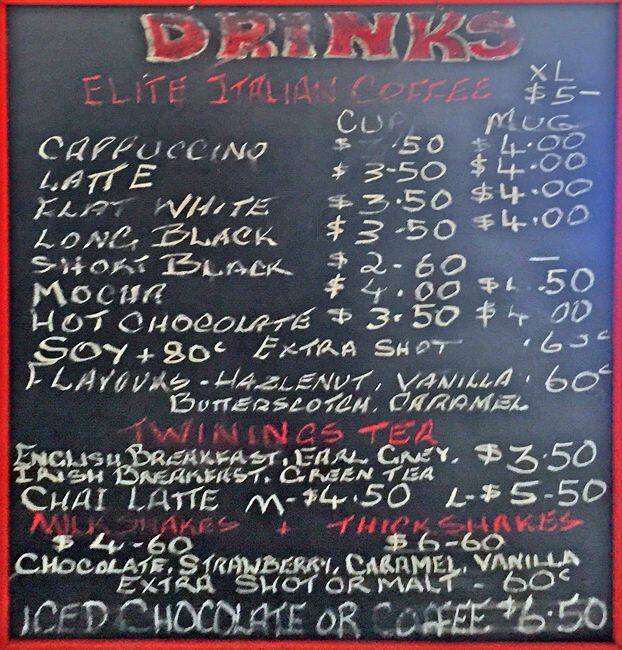 DRINKS
ELITE ITALIAN COFFEE XL $5-
CUP MUG
CAPPUCCINO .50 $4.00
LATTE $3-50 $4.00
FLAT WHITE $3.50 $4.00
LONG BLACK $3-50 $4.00
SHORT BLACK $2-60 —
MOCHA $4.00 .50
HOT CHOCOLATE $3.50 $4 00
SOY + 80c EXTRA SHOT
FLAVOURS - HAZLENUT, VANILLA . 60c
BUTTERSCOTCH, CARAMEL
TWININGS TEA
ENGLISH BREAKFAST, EARL GREY. $3.50
IRISH BREAKFAST, GREEN TEA
CHAI LATTE M-$4.50 L-$5-50
MILKSHAKES + THICKSHAKES
$4-60 $6-60
CHOCOLATE, STRAWBERRY, CARAMEL, VANILLA
EXTRA SHOT OR MALT - 60c
ICED CHOCOLATE OR COFFEE $6.50